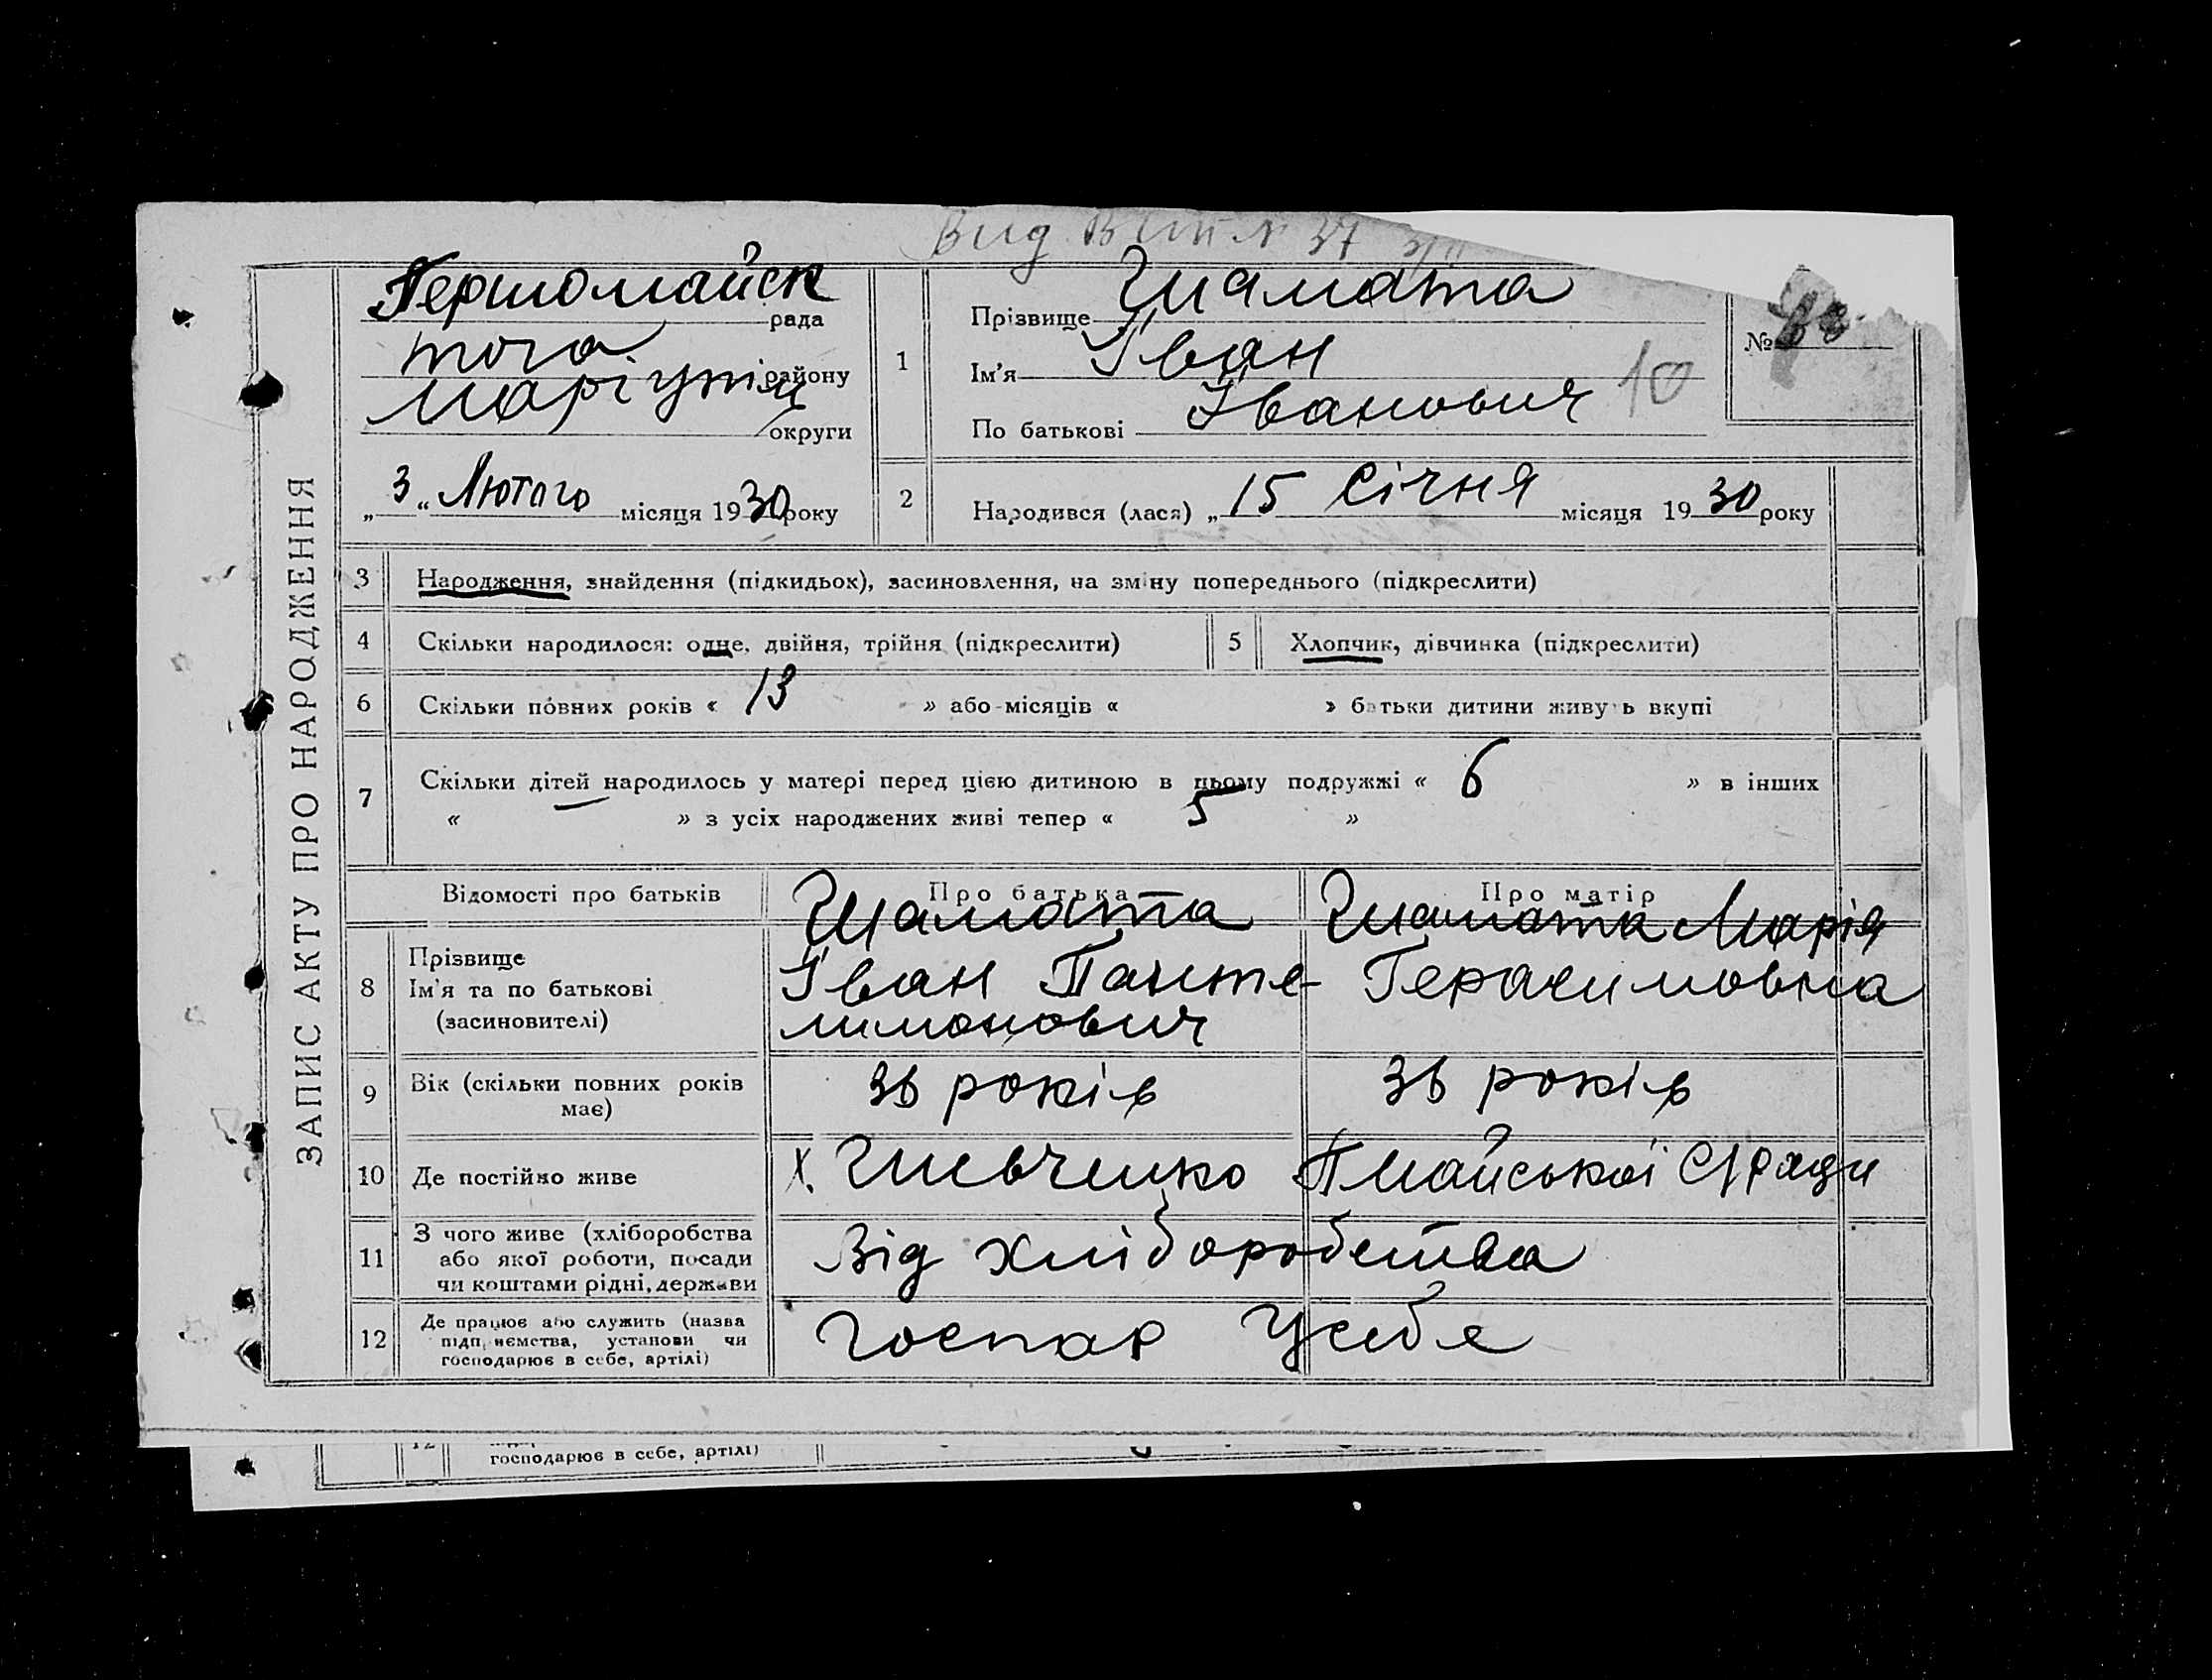 Вид В
Першомайск рада
того району
Маріупіл округи
„3“ Лютого місяця 1930 року
1
Прізвище Шамата
Ім'я Іван
По батькові Іванович
10
№
2
Народився (лася) „15 Січня місяця 1930 року
ЗАПИС АКТУ ПРО НАРОДЖЕННЯ
3 Народження, знайдення (підкидьох), засиновлення, на зміну попереднього (підкреслити)
4 Скільки народилося: одне, двійня, трійня (підкреслити)
5 Хлопчик, дівчинка (підкреслити)
6 Скільки повних років « 13 » або місяців « » батьки дитини живуть вкупі
7 Скільки дітей народилось у матері перед цією дитиною в цьому подружжі « 6 » в інших
« — » з усіх народжених живі тепер « 5 »
Відомості про батьків
Про батька
Про матір
8
Прізвище
Ім'я та по батькові
(засиновителі)
Шамата
Іван Панте-
лимонович
Шамата Марія
Герасимовна
9
Вік (скільки повних років
має)
36 років
36 років
10 Де постійно живе
х. Шевченко Пмайської С/ради
11
З чого живе (хліборобства
або якої роботи, посади
чи коштами рідні, держави
Від хліборобства
12
Де працює або служить (назва
підприємства, установи чи
господарює в себе, артілі)
Госпар Усебе
12
господарює в себе, артілі)